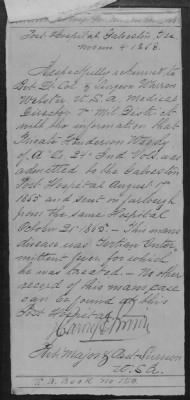 Post Hospital Galveston Tex
4 1868.
Respectfully returned to
Bvt Lt. Col & Surgeon Warren
Webster U.S.A. Medical
Director 5" Mil. Dist.
with the information that
Private Henderson
of A. Co. 2 Ind. Vols. was
admitted to the Galveston
Post Hospital August 1st
1865 and sent on furlough
from the same Hospital
October 21st 1865 - This mans
disease was Tertian Inter-
mittent fever for which
he was treated - No other
record of this mans case
can be found at this
Post Hospital
Bvt. Major & Asst Surgeon
U.S.A.
Book No 153.